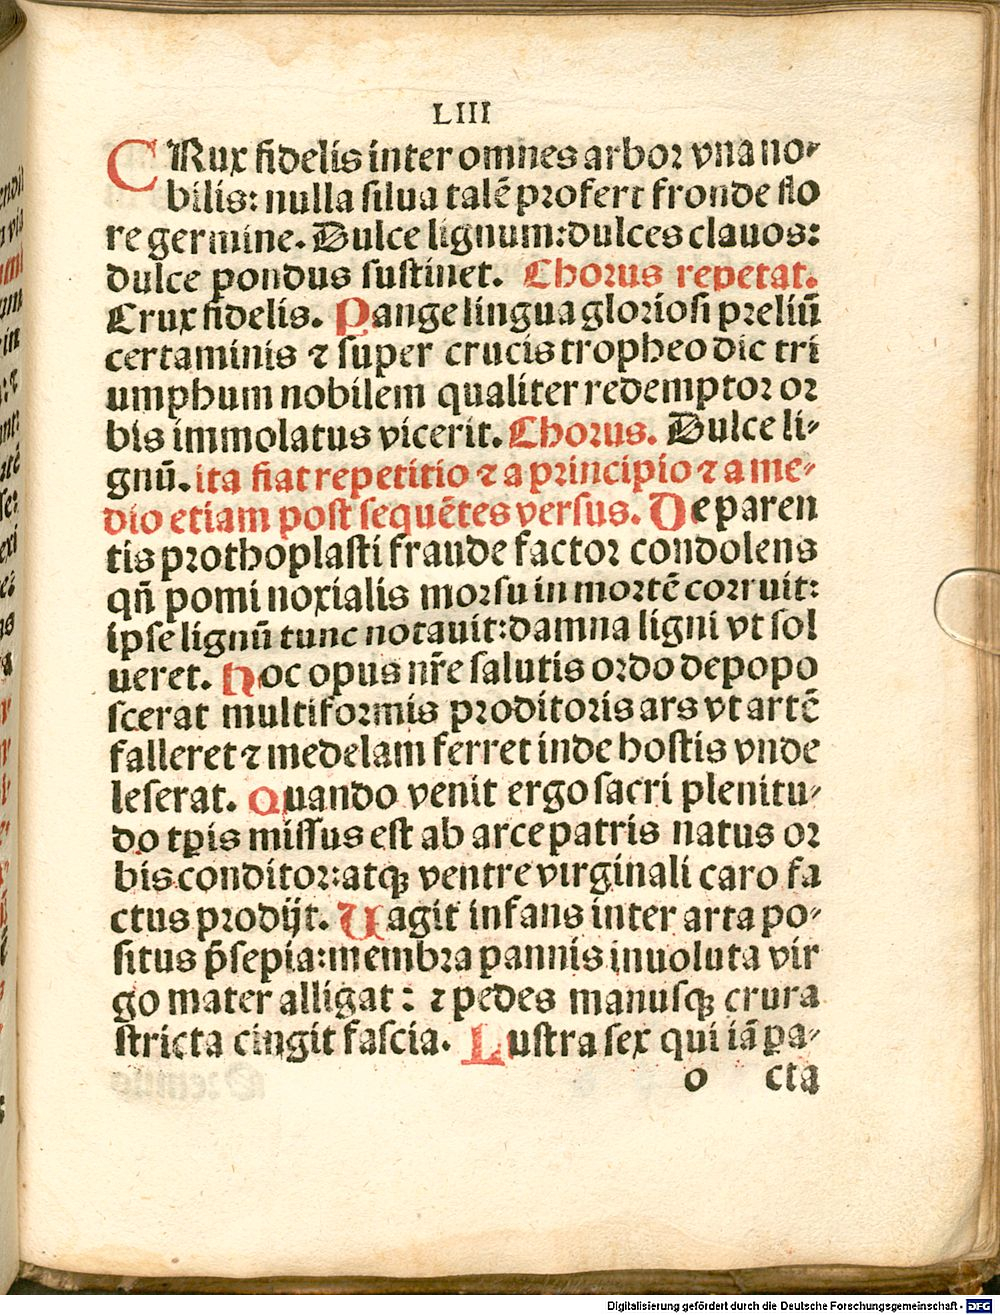 LIII
CRux fidelis inter omnes arbor vna no-
bilis: nulla silua talē profert fronde flo
re germine. Dulce lignum:dulces clauos:
dulce pondus sustinet. Chorus repetat.
Crux fidelis. Pange lingua gloriosi preliū
certaminis ⁊ super crucis tropheo dic tri
umphum nobilem qualiter redemptor or
bis immolatus vicerit. Chorus. Dulce li-
gnū. ita fiat repetitio ⁊ a principio ⁊ a me-
dio etiam post sequētes versus. De paren
tis prothoplasti fraude factor condolens
qñ pomi noxialis morsu in mortē corruit:
ipse lignū tunc notauit:damna ligni vt sol
ueret. Hoc opus nr̄e salutis ordo depopo
scerat multiformis proditoris ars vt artē
falleret ⁊ medelam ferret inde hostis vnde
leserat. Quando venit ergo sacri plenitu-
do tp̄is missus est ab arce patris natus or
bis conditor:atqꝫ ventre virginali caro fa
ctus prodijt. Uagit infans inter arta po-
situs p̄sepia:membra pannis inuoluta vir
go mater alligat: ⁊ pedes manusqꝫ crura
stricta cingit fascia. Lustra sex qui iā pa-
o cta
Digitalisierung gefördert durch die Deutsche Forschungsgemeinschaft - DFG